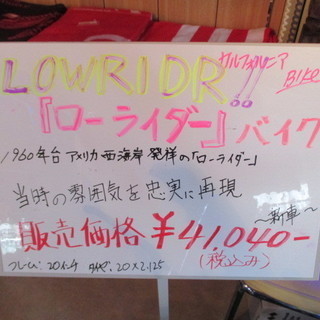 LOWRIDR!!
カルフォルニア
BIKE
『ローライダー』バイク
1960年台 アメリカ西海岸 発祥の「ローライダー」
当時の雰囲気を忠実に再現
〜新車〜
販売価格 ¥41,040-
(税込み)
フレーム:20インチ タイヤ:20×2.125